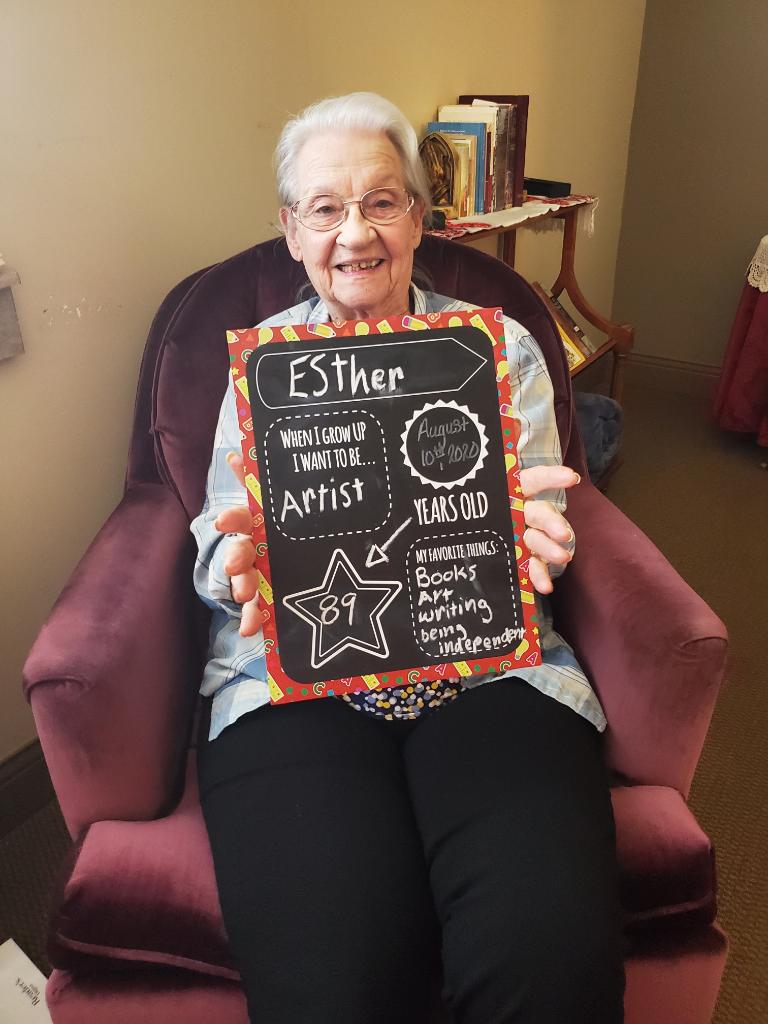 ESther
WHEN I GROW UP
I WANT TO BE...
Artist
August
10th, 2020
YEARS OLD
89
MY FAVORITE THINGS:
Books
Art
writing
being
independent